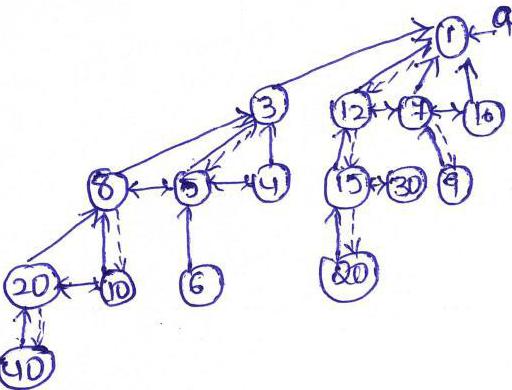 1 a
3 12 7 16
8 5 4 15 30 9
20 10 6 20
40